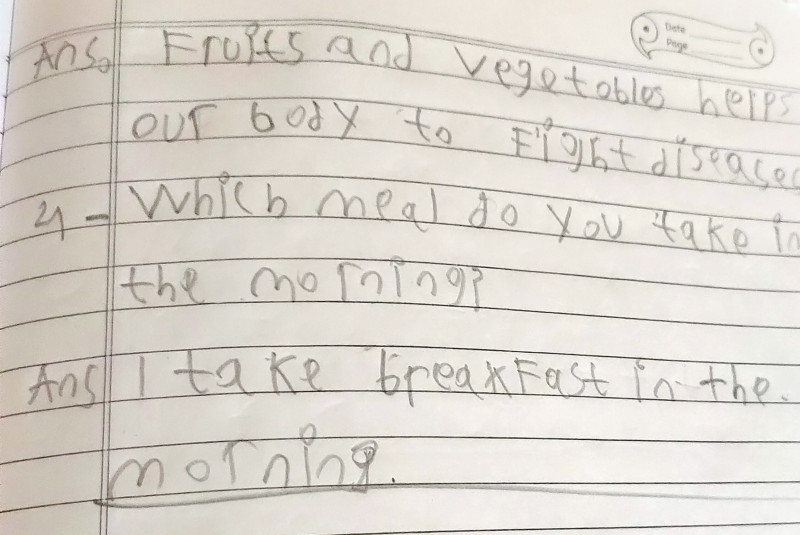 Date
Page
Ans. Fruits and vegetables helps
our body to Fight diseases
4 - Which meal do you take in
the morning?
Ans I take breakFast in the.
morning.